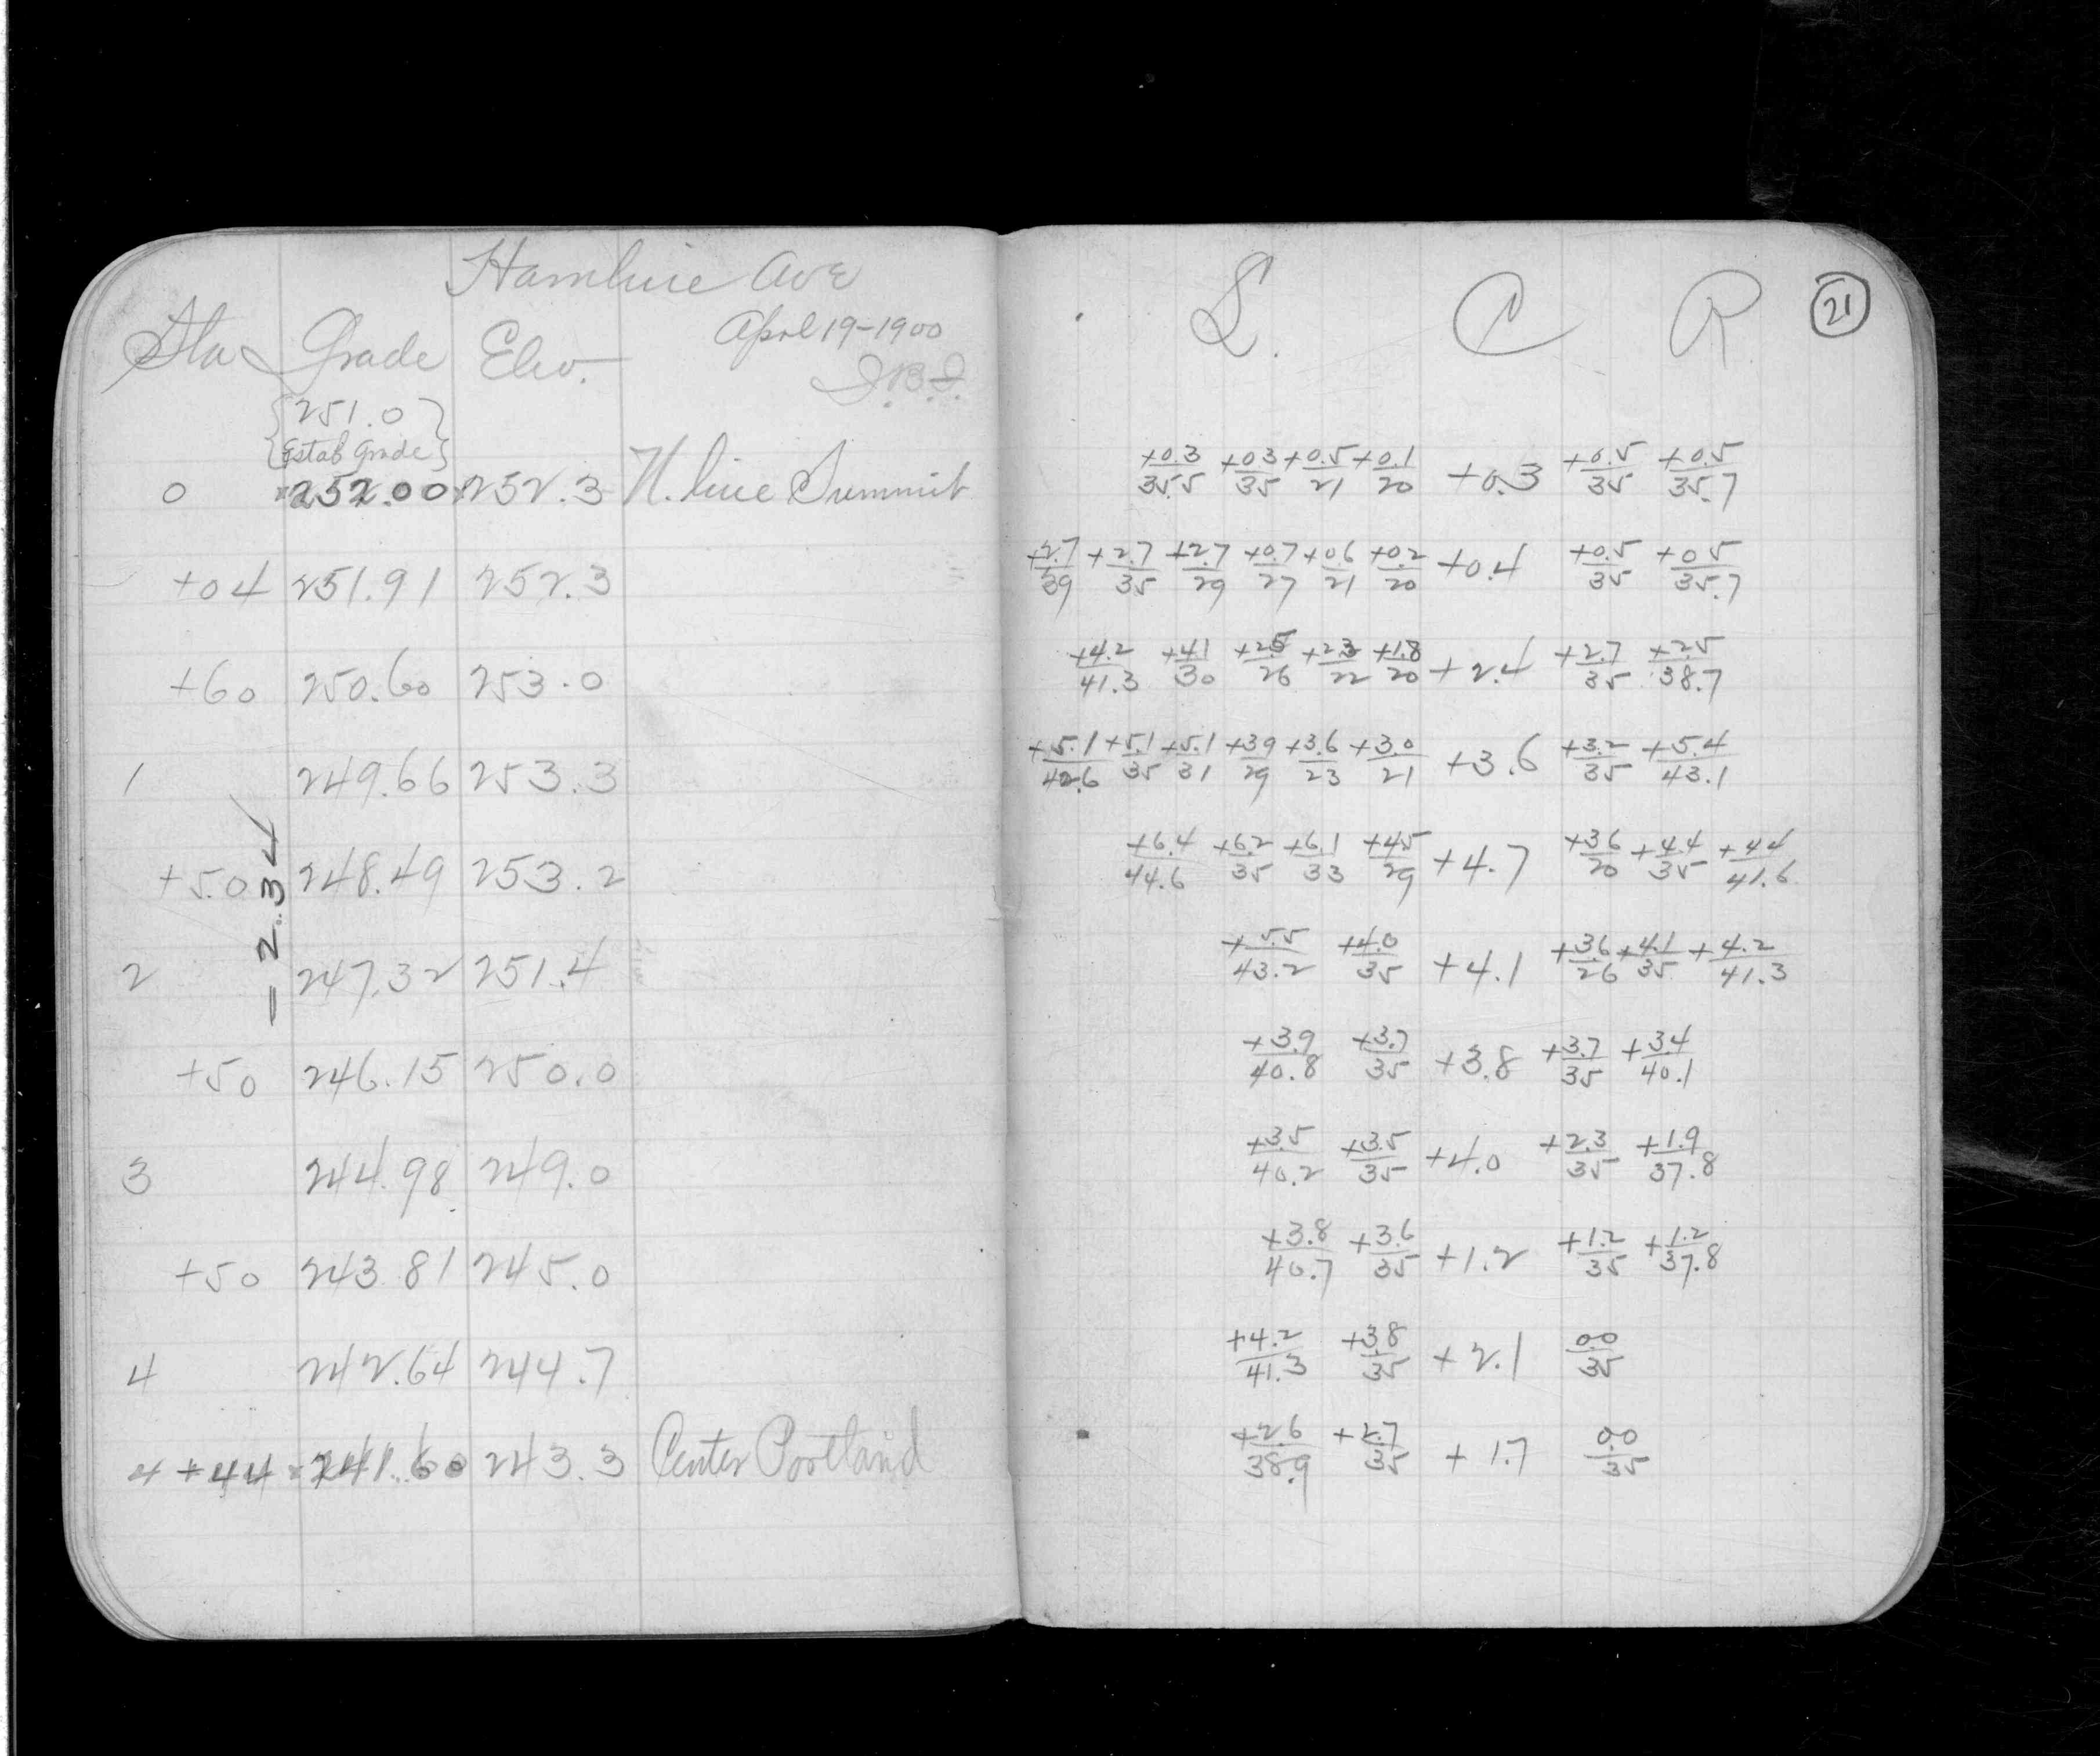 Hamline Ave
April 19-1900
Sta Grade Elev.
{251.0}
{Estab Grade}
0 252.00 252.3 N. line Summit
+04 251.91 252.3
+60 250.60 253.0
1 249.66 253.3
+50 248.49 253.2
-2.34
2 247.32 251.4
+50 246.15 250.0
3 244.98 249.0
+50 243.81 245.0
4 242.64 244.7
4+44 241.60 243.3 Center Portland
L. C R 21
+0.3/35.5 +0.3/35 +0.5/21 +0.1/20 +0.3 +0.5/35 +0.5/35.7
+2.7/39 +2.7/35 +2.7/29 +0.7/27 +0.6/21 +0.2/20 +0.4 +0.5/35 +0.5/35.7
+4.2/41.3 +4.1/30 +2.5/26 +2.3/22 +1.8/20 +2.4 +2.7/35 +2.5/38.7
+5.1/42.6 +5.1/35 +5.1/31 +3.9/29 +3.6/23 +3.0/21 +3.6 +3.2/35 +5.4/43.1
+6.4/44.6 +6.2/35 +6.1/33 +4.5/29 +4.7 +3.6/20 +4.4/35 +4.4/41.6
+5.5/43.2 +4.0/35 +4.1 +3.6/26 +4.1/35 +4.2/41.3
+3.9/40.8 +3.7/35 +3.8 +3.7/35 +3.4/40.1
+3.5/40.2 +3.5/35 +4.0 +2.3/35 +1.9/37.8
+3.8/40.7 +3.6/35 +1.2 +1.2/35 +1.2/37.8
+4.2/41.3 +3.8/35 +2.1 0.0/35
+2.6/38.9 +2.7/35 +1.7 0.0/35